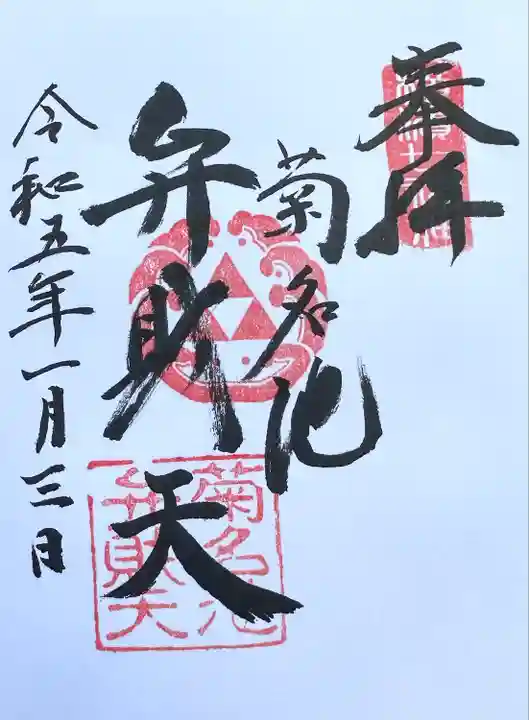 奉拝
菊名池
弁財天
令和五年一月三日
横濱七福神
菊名池
弁財天